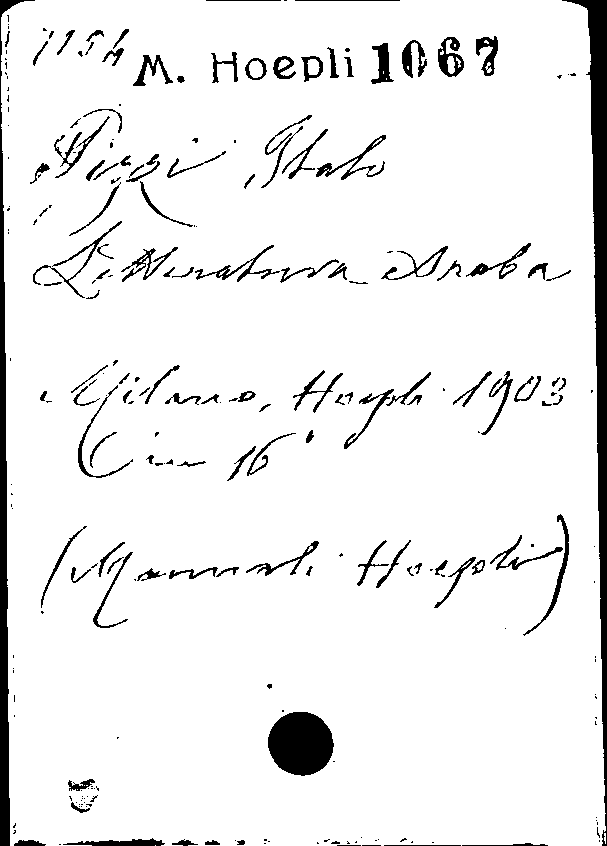 7154 M. Hoepli 1067
Pizzi Italo
Letteratura Araba
Milano, Hoepli 1903
in 16°
(Manuali Hoepli)